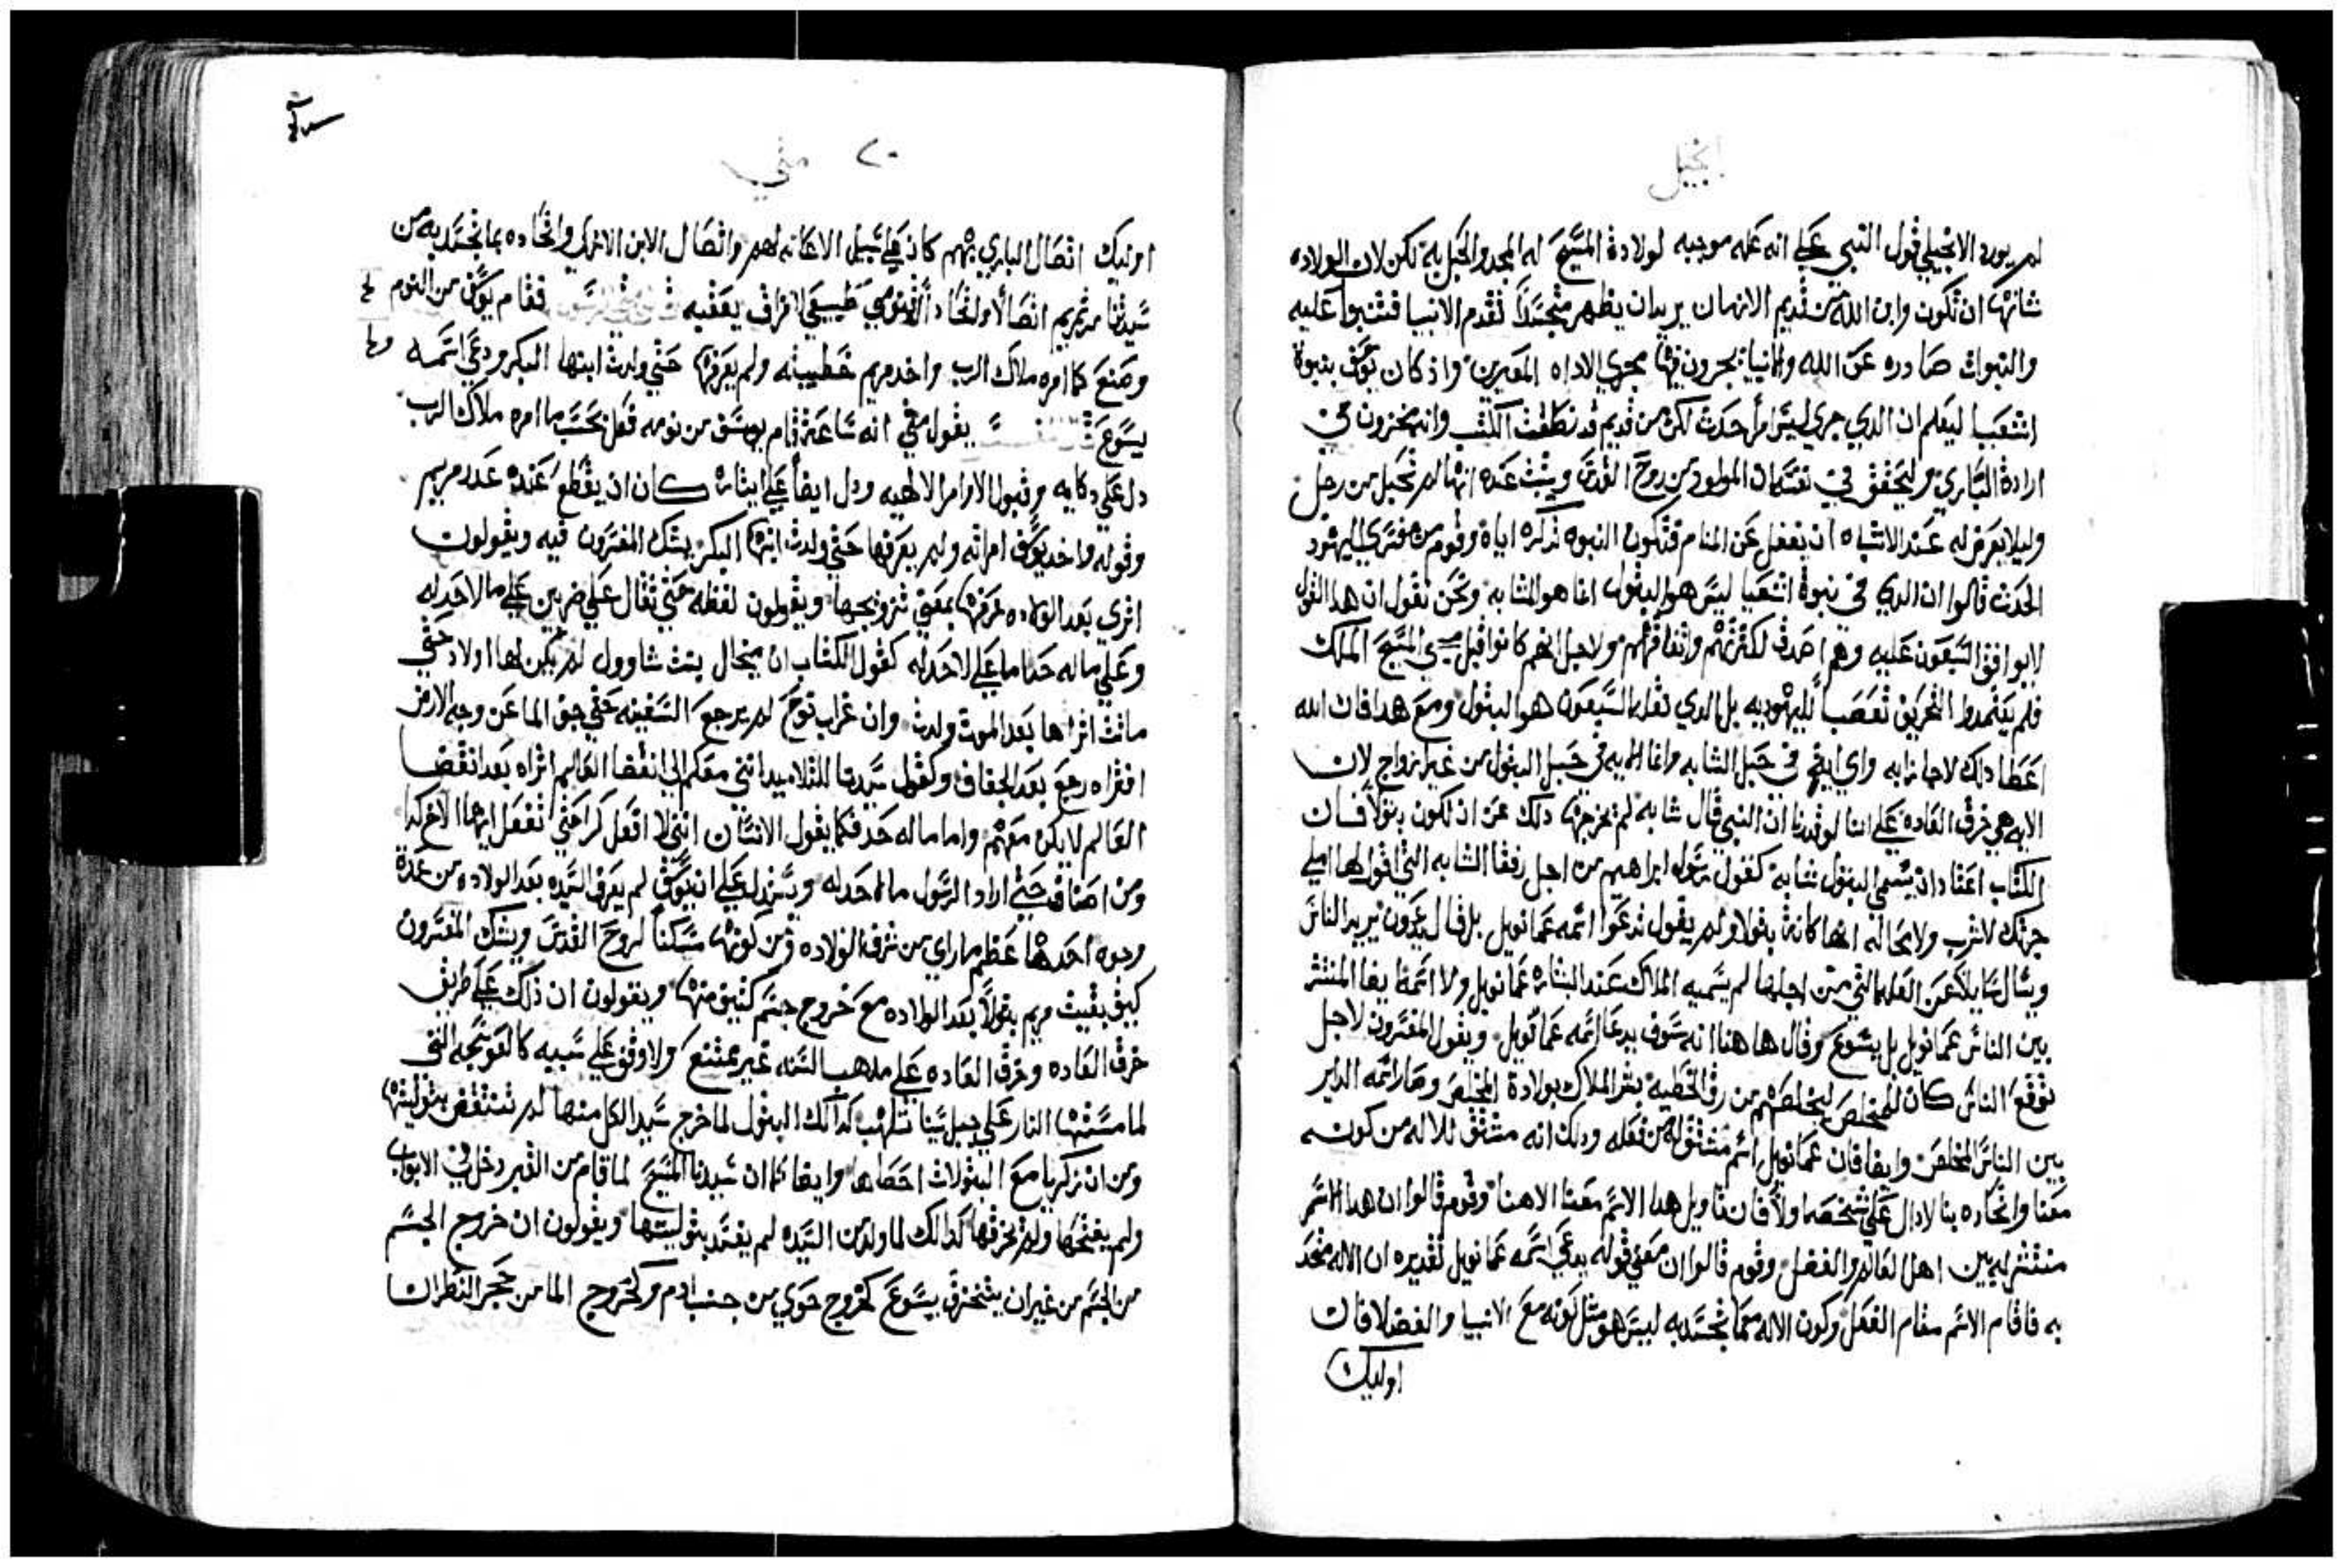 انجيل
لم يورد الانجيلي قول النبي علي انه عله موجبه لولادة المسيح له المجد والحبل به لكن لان الولاده
شانها ان تكون وابن الله من قديم الازمان يريدان يظهر متجسداً تقدم الانبيا فتنبوا عليه
والنبوات صادره عن الله والانبيا يجرون فيها مجري الاداه المعبرين واذ كان يوسف بنبوة
اشعيا ليعلم ان الدي جري ليس امراً حدث لكن من قديم قد نطقت الكتب وانه مخزون في
ارادة الباري وليتحقق في نفسه ان المولود من روح القدس ويثبت عنده انها لم تحبل من رجل
وليلا يعرض له عند الانتباه ان يغفل عن المنام فتكون النبوه تذكره اياه وقوم من مفسري اليهود
الحدث قالوا ان الدي في نبوة اشعيا ليس هو البتول انما هو الشابه ونحن نقول ان هدا القول
لا يوافق السبعون عليه وهم اصدق لكثرتهم واتفاقهم ولاجل انهم كانوا قبل مجي المسيح الملك
فلم يعتمدوا التحريف تعصباً لليهوديه بل الدي نقله السبعون هو البتول ومع هدا فان الله
اعطا دلك لاحاز ايه واي ايه في حبل الشابه وانما الايه في حبل البتول من غير ازواج لان
الايه هي خرق العاده علي اننا لو قدرنا ان النبي قال شابه لم يخرجها دلك عن ان تكون بتولاً فان
الكتاب اعتاد ان يسمي البتول شابه كقول رسول ابراهيم من اجل رفقا الشابه التي اقول لها املي
جرتك لاشرب ولا محاله انها كانت بتولا ولم يقول تدعوا اسمه عمانويل بل قال يدعون يريد الناس
ويسال سايلا عن العله التي من اجلها لم يسميه الملاك عند البشاره عمانويل ولا اسمه ايضا المنتشر
بين الناس عمانويل بل يسوع وقال ها هنا انه سوف يدعا اسمه عمانويل ويقول المفسرون لاجل
توقع الناس كان للمخلص ليخلصهم من رق الخطيه بشر الملاك بولادة المخلص وصار اسمه الداير
بين الناس المخلص وايضا فان عمانويل اسم مشتق له من فعله ودلك انه مشتق للاله من كونه
معنا واتحاده بنا لا دال علي شخصه ولا فان تاويل هدا الاسم معنا الاهنا وقوم قالوا ان هدا الاسم
منتشر له بين اهل العالم والفضل وقوم قالوا ان معني قوله يدعي اسمه عمانويل تقديره ان الاله متحد
به فاقام الاسم مقام الفعل وكون الاله معما تجسد به ليس هو مثل كونه مع الانبيا والفضلا فان
اوليك
٢٠ متي
اوليك اتصال الباري بهم كان علي سبيل الاعانه لهم واتصال الابن الازلي واتحاده بما تجسد به من
سيدتنا مرتمريم اتصالاً واتحاداً اقنومي طبيعي لا فراق يعقبه فقام يوسف من النوم
وصنع كما امره ملاك الرب واخد مريم خطيبته ولم يعرفها حتي ولدت ابنها البكر ودعي اسمه
يسوع يقول متي انه ساعة قام يوسف من نومه فعل بحسب ما امره ملاك الرب
دل علي دكايه وقبول الاوامر الالهيه ودل ايضاً علي ايثاره كان ان يقطع عنده عدر مريم
وقوله واخد يوسف امراته ولم يعرفها حتي ولدت ابنها البكر يشك المفسرون فيه ويقولون
اتري بعد الولاده عرفها بمعني تزوجها ويقولون لفظه حتي تقال علي ضربين علي ما لا حد له
وعلي ما له حد اما علي لا حد له كقول الكتاب ان ميخال بنت شاوول لم يكن لها اولاد حتي
ماتت اتراها بعد الموت ولدت وان غراب نوح لم يرجع السفينه حتي جف الما عن وجه الارض
افتراه رجع بعد الجفاف وكقول سيدنا للتلاميد انني معكم الي انقضا العالم اتراه بعد انقضا
العالم لا يكن معهم واما ما له حد فكما يقول الانسان انني لا افعل كدا حتي تفعل ايها الاخ كدا
ومن اصناف حتي اراد الرسول ما لا حد له ويستدل علي ان يوسف لم يعرف السيده بعد الولاده من عدة
وجوه احدها عظم ما راي من شرف الولاده ومن كونها مسكناً لروح القدس ويشك المفسرون
كيف بقيت مريم بتولاً بعد الولاده مع خروج جسم كثيف منها ويقولون ان ذلك علي طريق
خرق العاده وخرق العاده علي مدهب السنه غير ممتنع ولا وقف علي سببه كالعوسجه التي
لما مستها النار علي جبل سينا تلهب كدالك البتول لما خرج سيد الكل منها لم تنتقض بتوليتها
ومن ان زكريا مع البتولات احصاها وايضا كما ان سيدنا المسيح لما قام من القبر دخل في الابواب
ولم يفتحها ولم يخرقها كدالك لما ولد من السيده لم يفسد بتوليتها ويقولون ان خروج الجسم
من الجسم من غير ان يتخرق يسوع كخروج حوي من جنب ادم وكخروج الما من حجر الظران